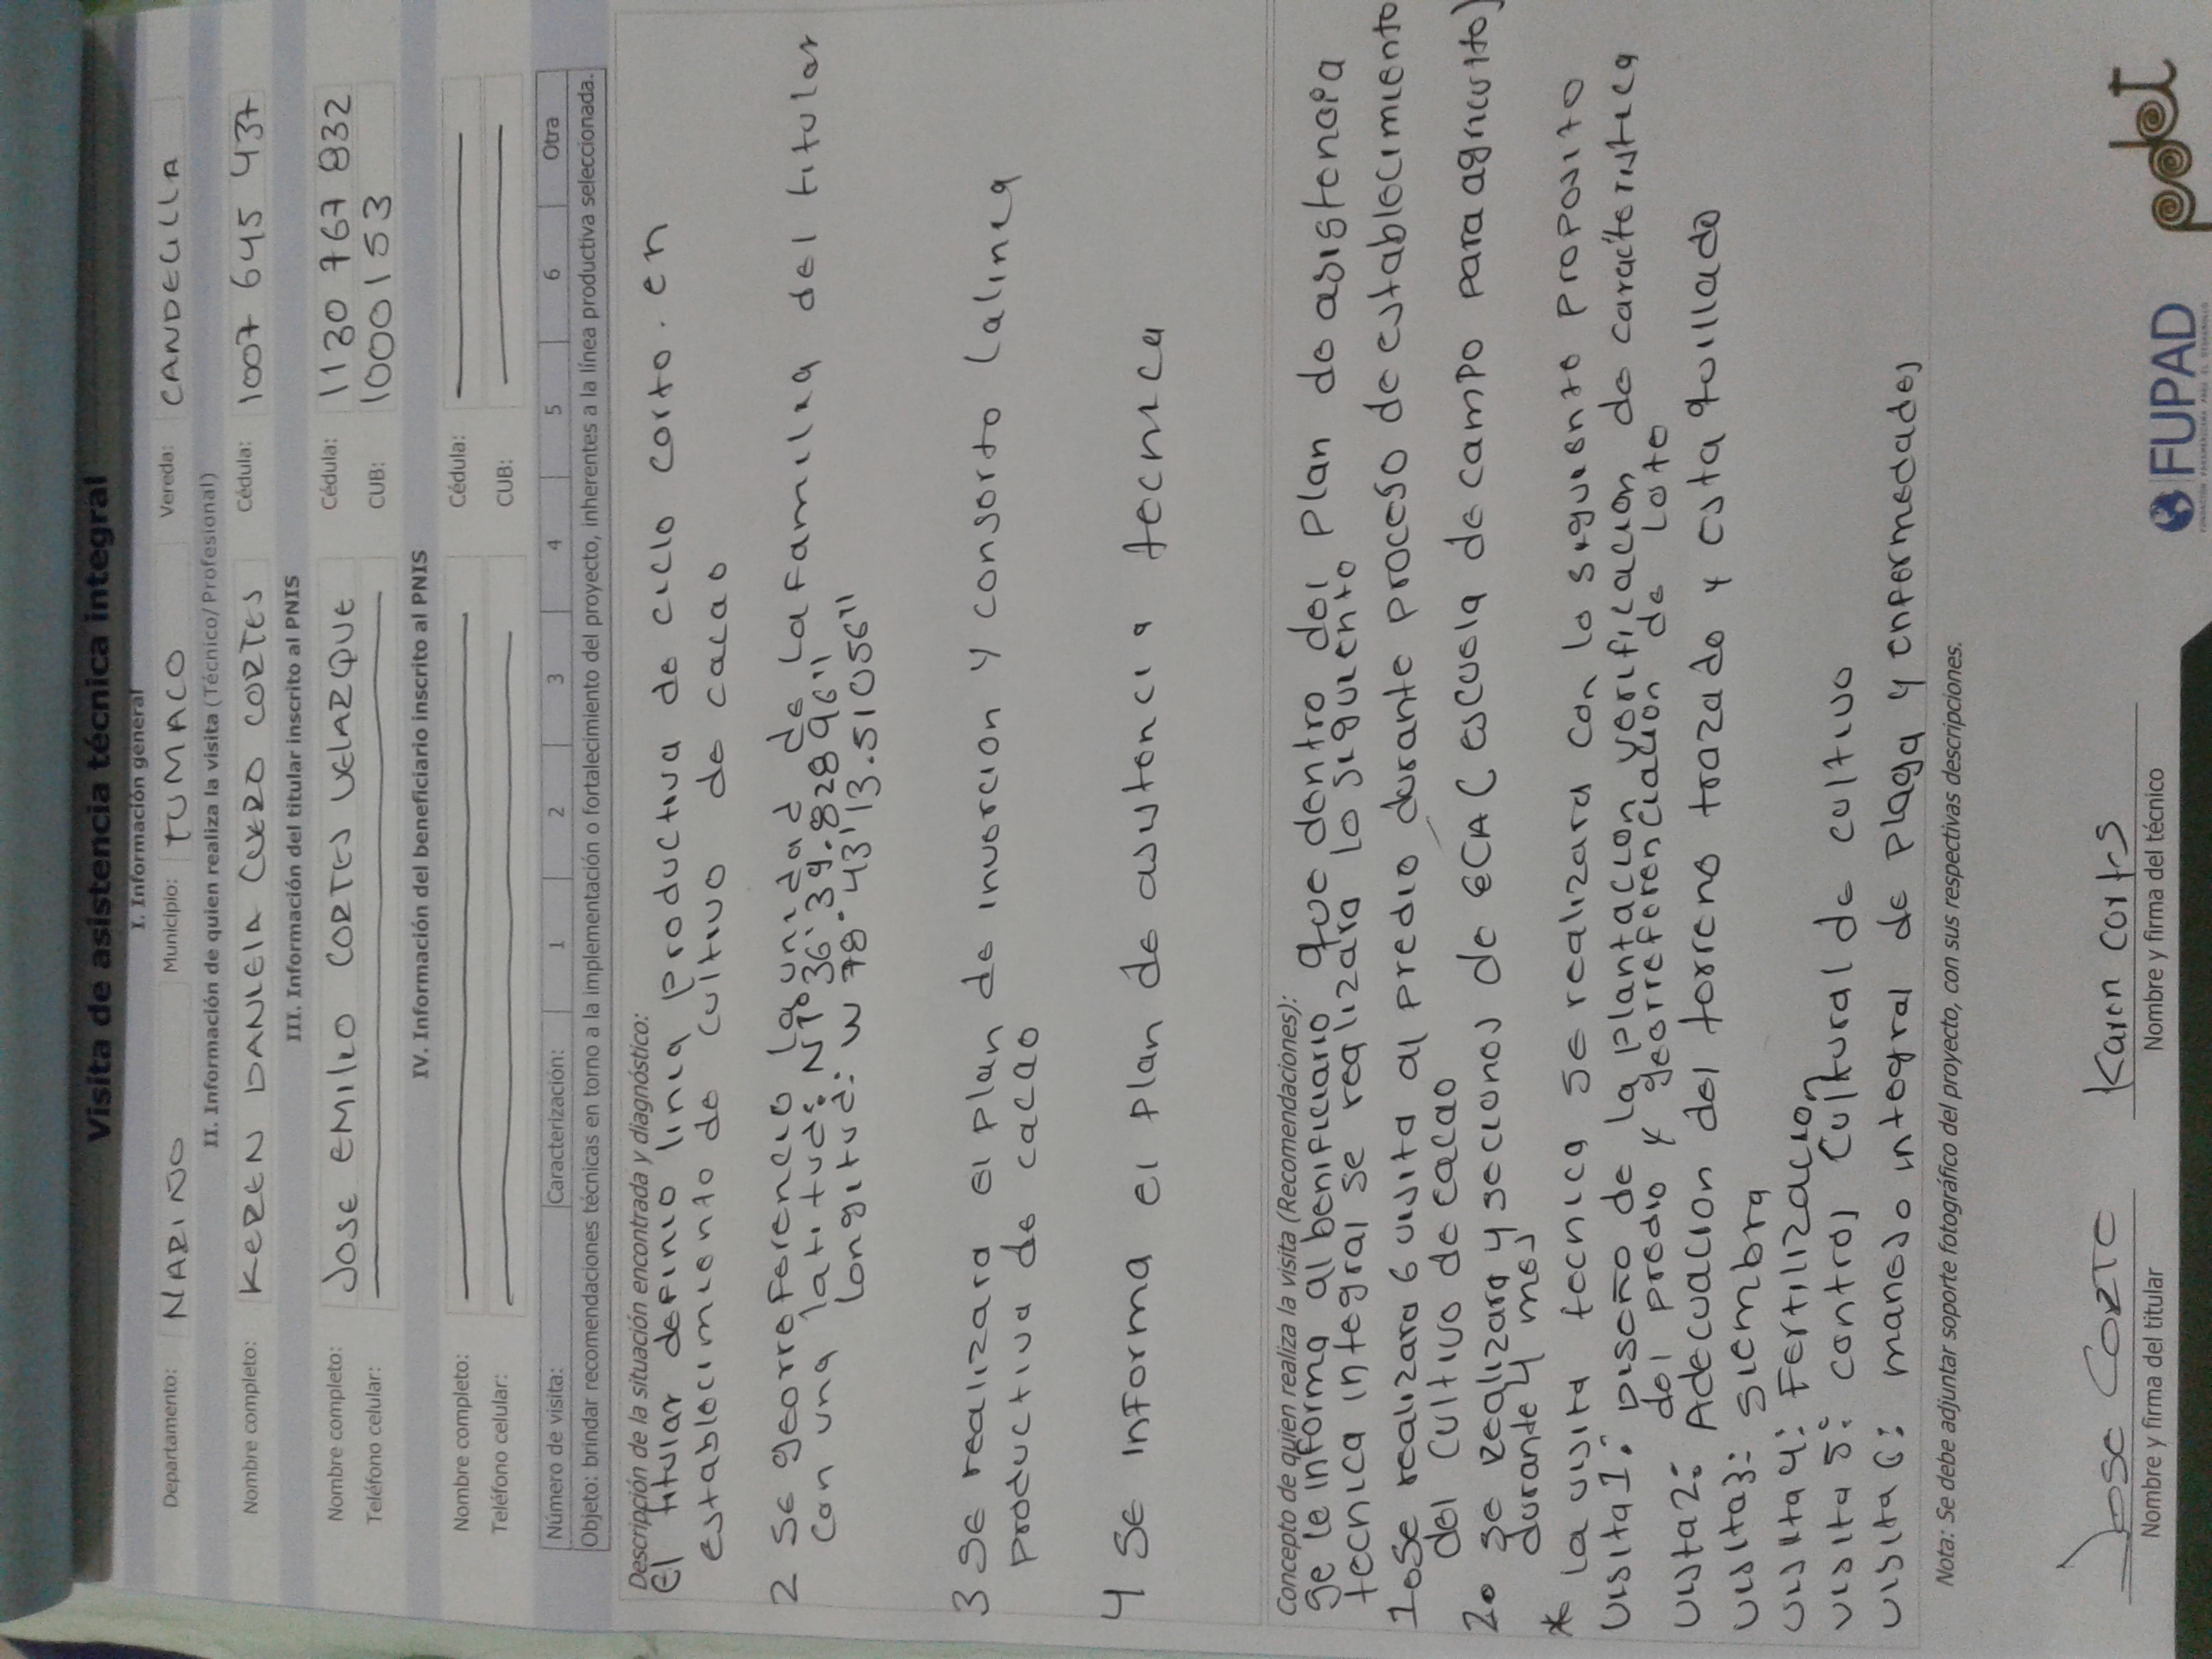 Visita de asistencia técnica integral
I. Información general
Departamento: NARINO Municipio: TUMACO Vereda: CANDELILLA
II. Información de quien realiza la visita (Técnico/ Profesional)
Nombre completo: KEREN DANIELA CUERO CORTES Cédula: 1007 645 437
III. Información del titular inscrito al PNIS
Nombre completo: JOSE EMILIO CORTES VELAZQUE Cédula: 1130 767 832
Teléfono celular: CUB: 1000153
IV. Información del beneficiario inscrito al PNIS
Nombre completo: Cédula:
Teléfono celular: CUB:
Número de visita: Caracterización: 1 2 3 4 5 6 Otra
Objeto: brindar recomendaciones técnicas en torno a la implementación o fortalecimiento del proyecto, inherentes a la línea productiva seleccionada.
Descripción de la situación encontrada y diagnóstico:
el titular definio linia productiva de ciclo corto. en
establecimiento de cultivo de cacao
2 Se georreferencio la unidad de la familia del titular
con una latitud: N 1° 36' 39.82896"
longitud: W 78° 43' 13.51056"
3 Se realizara el plan de invercion y consorto la linea
productiva de cacao
4 Se informa el plan de asistencia tecnica
Concepto de quien realiza la visita (Recomendaciones):
se le informa al benificiario que dentro del plan de asistencia
tecnica integral se realizara lo siguiente
1 Se realizara 6 visita al predio durante proceso de establecimiento
del cultivo de cacao
2 se realizara 4 seciones de ECA ( escuela de campo para agricurto)
durante 4 mes
* la visita tecnica se realizara con lo siguiente proposito
Visita 1: Diseño de la plantacion verificacion de caracteristica
del predio y georreferenciacion de lote
Vista 2: Adecuacion del terreno trazado y esta quillado
visita 3: siembra
visita 4: Fertilizacion
visita 5: control cultural de cultivo
visita 6: maneso integral de plaga y enfermedades
Nota: Se debe adjuntar soporte fotográfico del proyecto, con sus respectivas descripciones.
Jose CORTE
Nombre y firma del titular
Karen corts
Nombre y firma del técnico
FUPAD
pdet